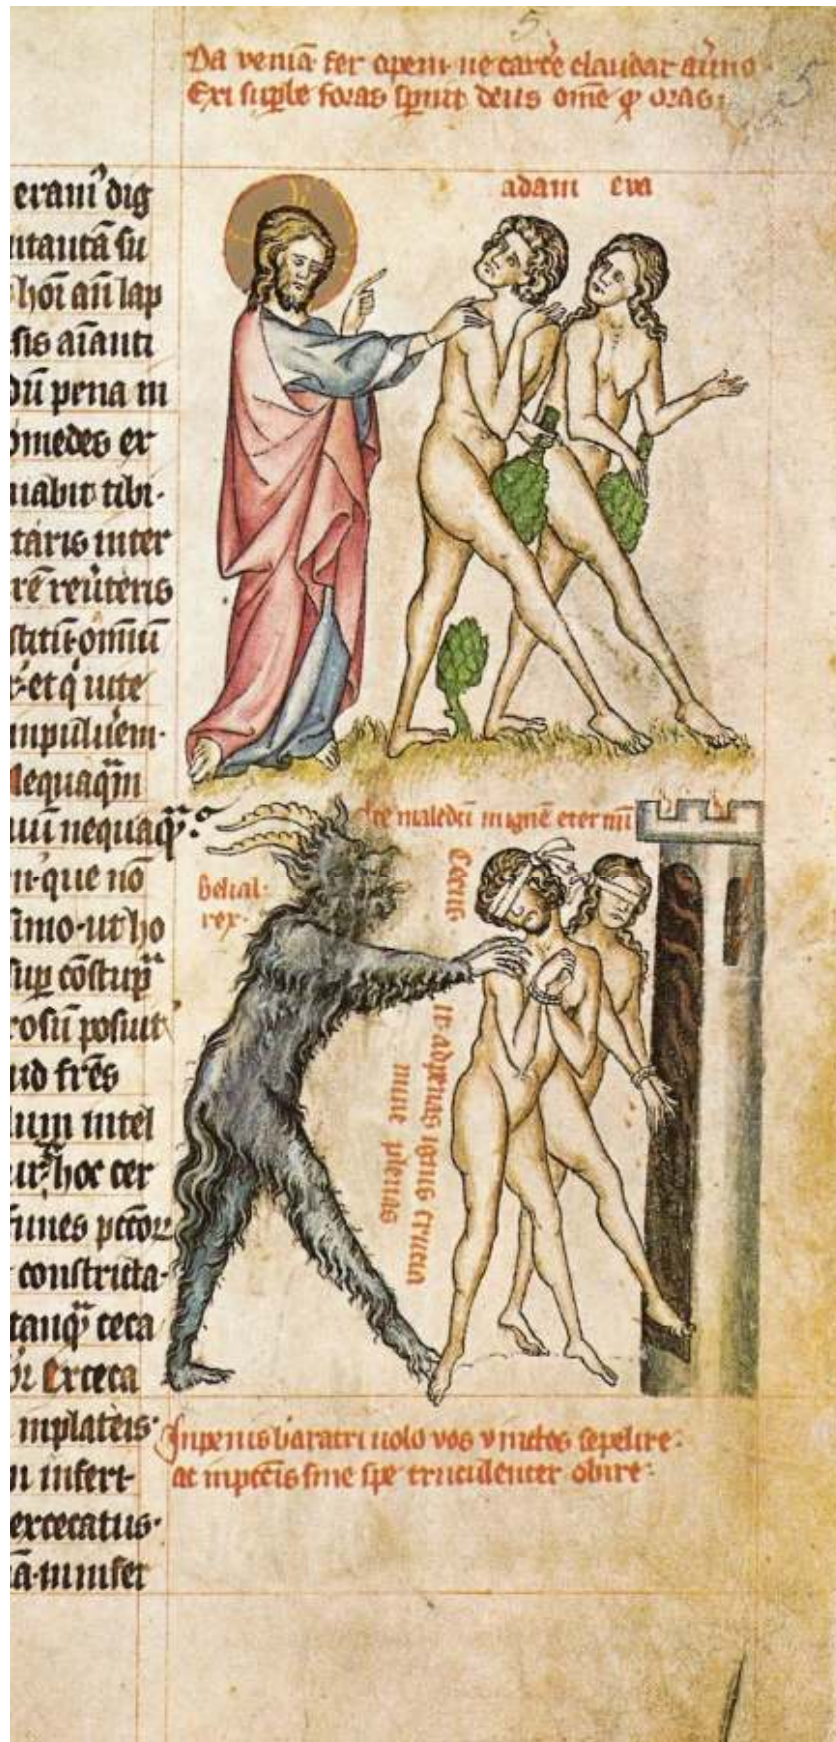 5
Da veniā fer opem ne carcē claudar
Exi suple foras spernit deus omē qđ oras
5
adam eva
eram᷒ dig
ntautā su
hoī an lap
sis aīanti
dū pena in
omedes ex
uabit tibi·
taris inter
rē reūteris
stitū omīum
et q uite
inpulūem·
Nequaq̄m
uū nequaq̄
n que nō
simo·ut ho
sup cōstup
rosū posuit
ud frēs
lum intel
ur hoc cer
funes pccōr
constricta·
tanq̄ ceca
or Exceca
inplateis·
n infert
excecatus·
ā·in infer
Ite maledcī in ignē eternū
belial·
rex·
Cecus
Ite ad penas ignis crucia
mine plenas
In penis baratri uolo vos vinctos sepelire·
ac in pccīs sine spe truculenter obire·